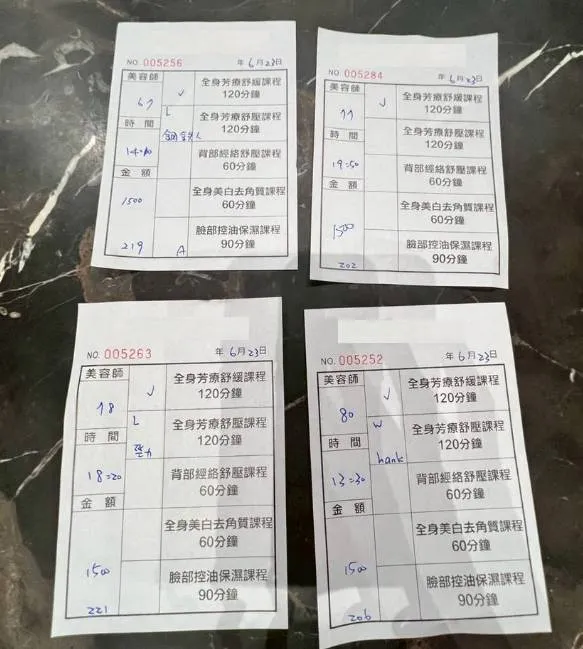 NO. 005256 年 6月23日
美容師
67
時間
14:10
金額
1500
219
√
L
鋼鐵人
A
全身芳療舒緩課程
120分鐘
全身芳療舒壓課程
120分鐘
背部經絡舒壓課程
60分鐘
全身美白去角質課程
60分鐘
臉部控油保濕課程
90分鐘
NO. 005284 年 6月23日
美容師
77
時間
19:50
金額
1500
202
√
全身芳療舒緩課程
120分鐘
全身芳療舒壓課程
120分鐘
背部經絡舒壓課程
60分鐘
全身美白去角質課程
60分鐘
臉部控油保濕課程
90分鐘
NO. 005263 年 6月23日
美容師
78
時間
18:20
金額
1500
221
√
L
全身芳療舒緩課程
120分鐘
全身芳療舒壓課程
120分鐘
背部經絡舒壓課程
60分鐘
全身美白去角質課程
60分鐘
臉部控油保濕課程
90分鐘
NO. 005252 年 6月23日
美容師
80
時間
13:30
金額
1500
206
√
W
hank
全身芳療舒緩課程
120分鐘
全身芳療舒壓課程
120分鐘
背部經絡舒壓課程
60分鐘
全身美白去角質課程
60分鐘
臉部控油保濕課程
90分鐘